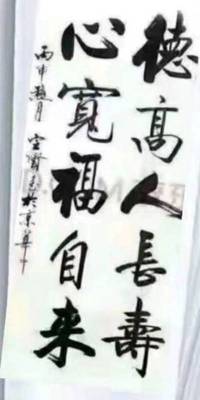 德高人長壽
心寬福自来
丙申越月 空賢書於京華